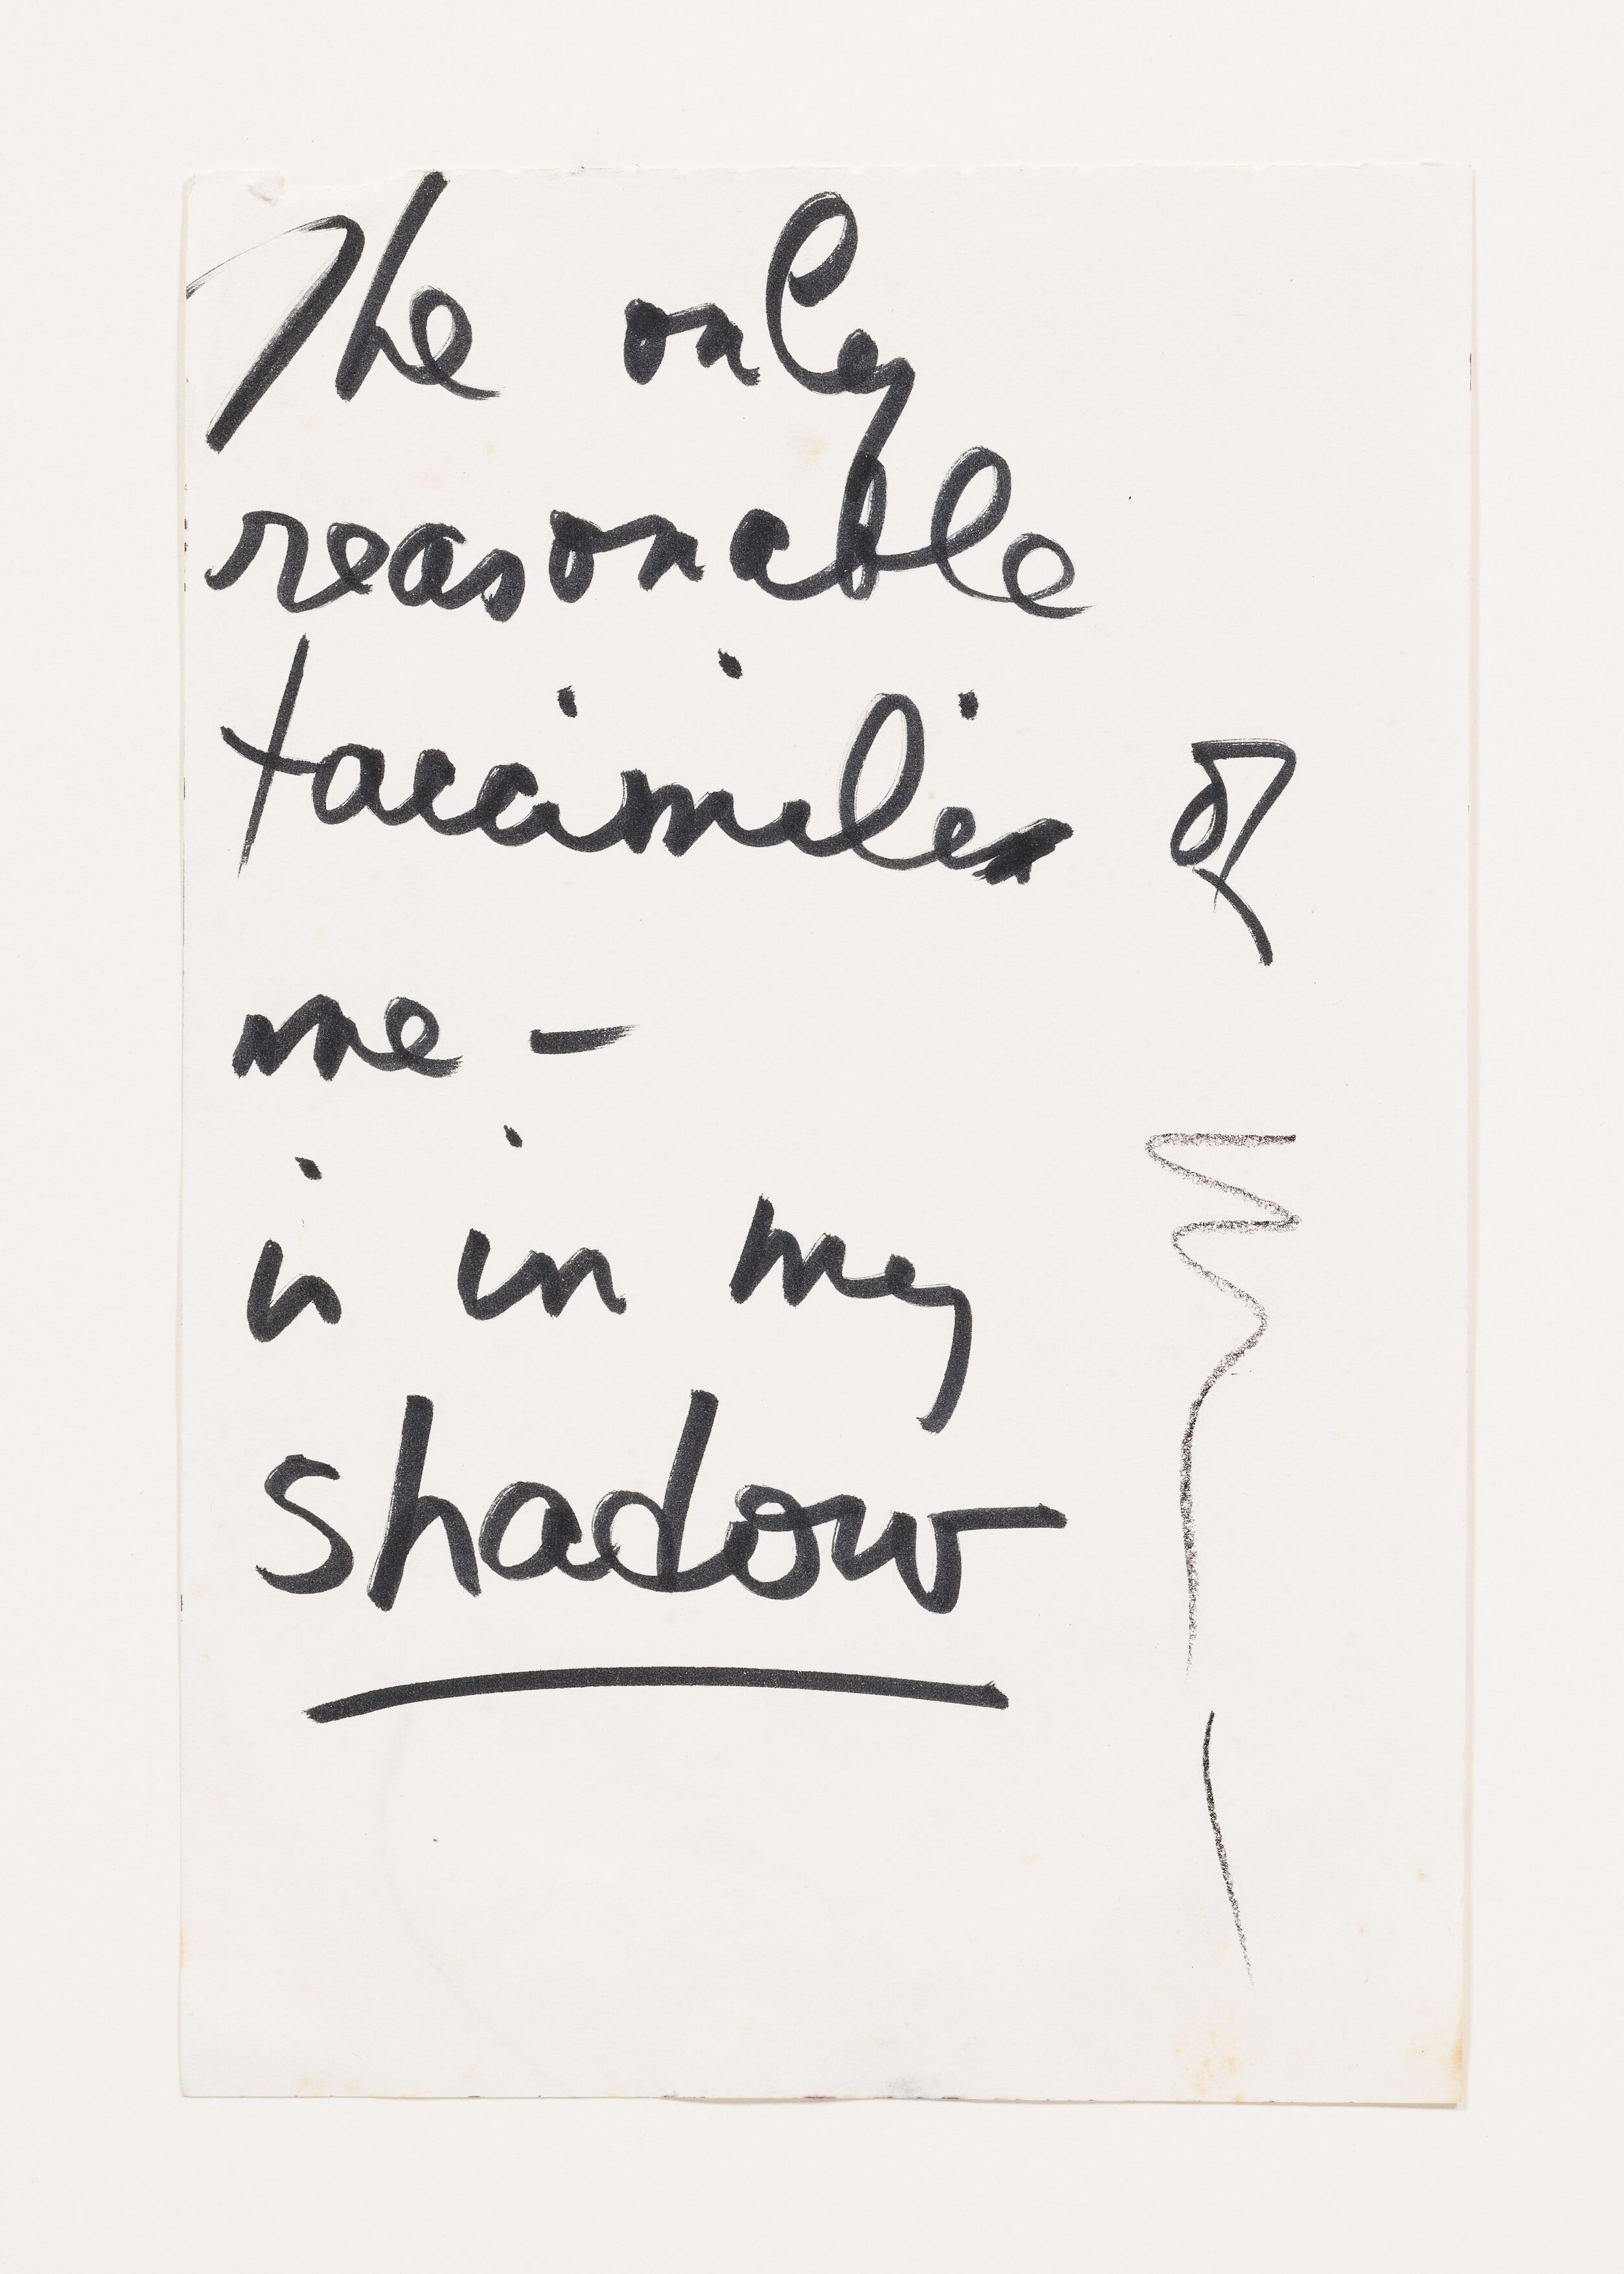 The only
reasonable
faccimilie of
me -
is in my
shadow